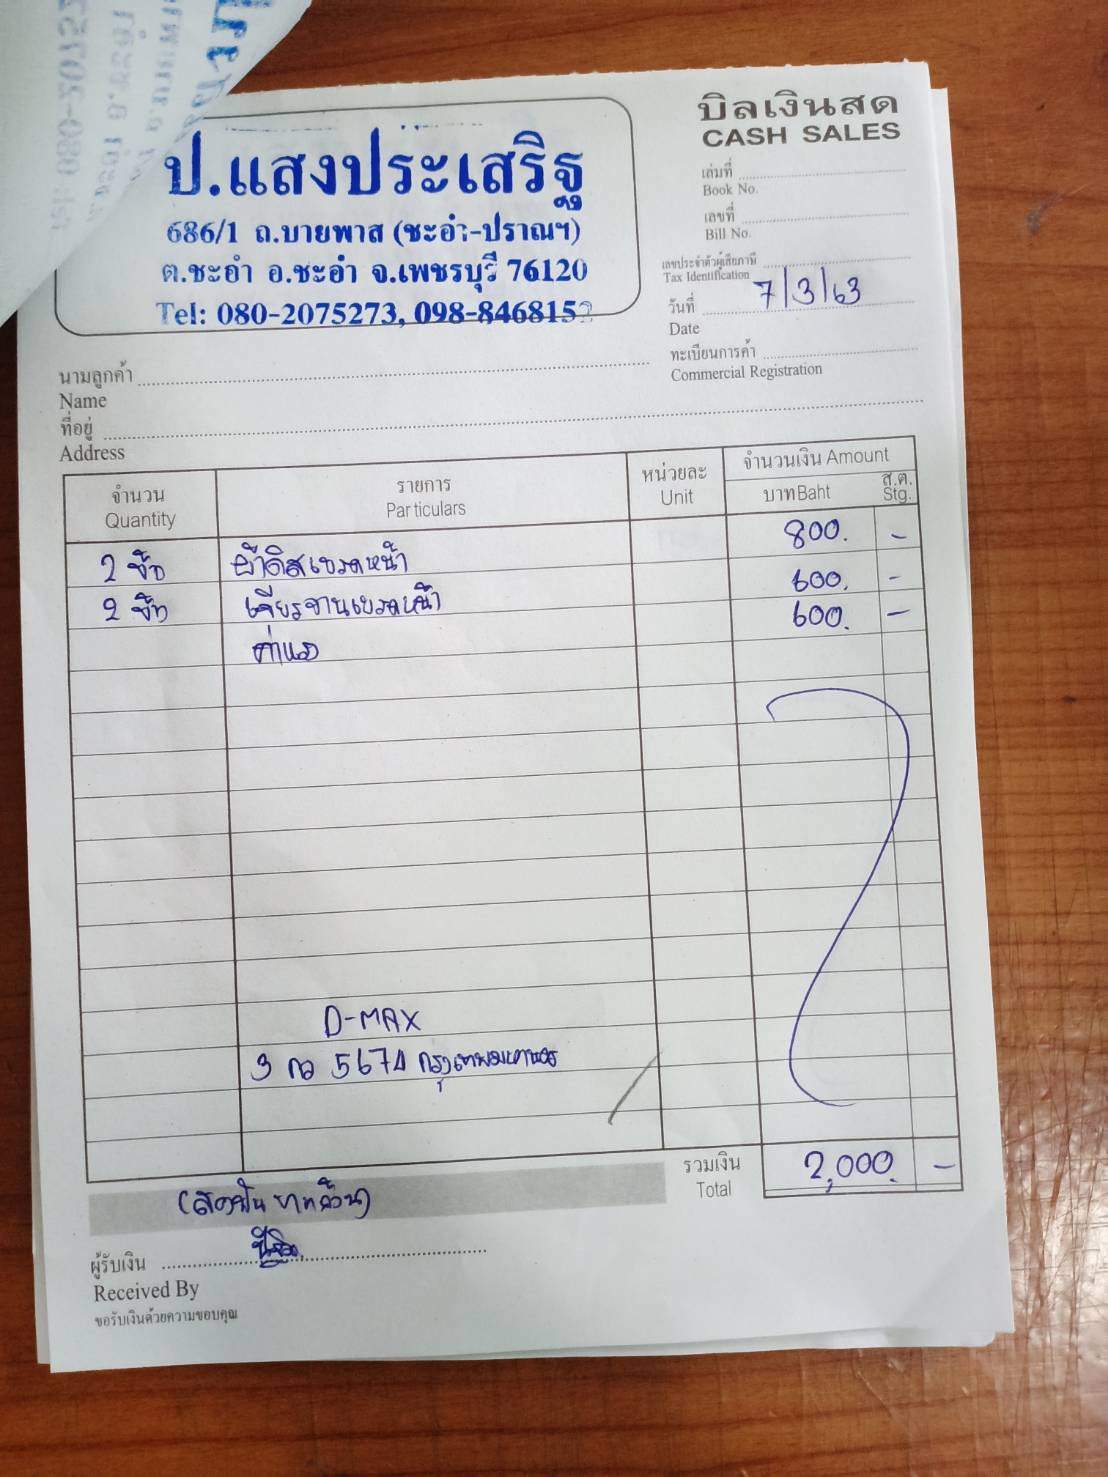 บิลเงินสด
CASH SALES
ป.แสงประเสริฐ
686/1 ถ.บายพาส (ชะอำ-ปราณฯ)
ต.ชะอำ อ.ชะอำ จ.เพชรบุรี 76120
Tel: 080-2075273, 098-8468152
เล่มที่
Book No.
เลขที่
Bill No.
เลขประจำตัวผู้เสียภาษี
Tax Identification
วันที่ 7/3/63
Date
ทะเบียนการค้า
Commercial Registration
นามลูกค้า
Name
ที่อยู่
Address
จำนวน รายการ หน่วยละ จำนวนเงิน Amount
Quantity Particulars Unit บาท Baht ส.ต. Stg.
2 ข้าง ผ้าดิสเบรคหน้า 800. -
2 ข้าง เจียรจานเบรคหน้า 600. -
ค่าแรง 600. -
D-MAX
3 กอ 5674 กรุงเทพมหานคร
รวมเงิน 2,000. -
Total
(สองพันบาทถ้วน)
ผู้รับเงิน
Received By
ขอรับเงินด้วยความขอบคุณ